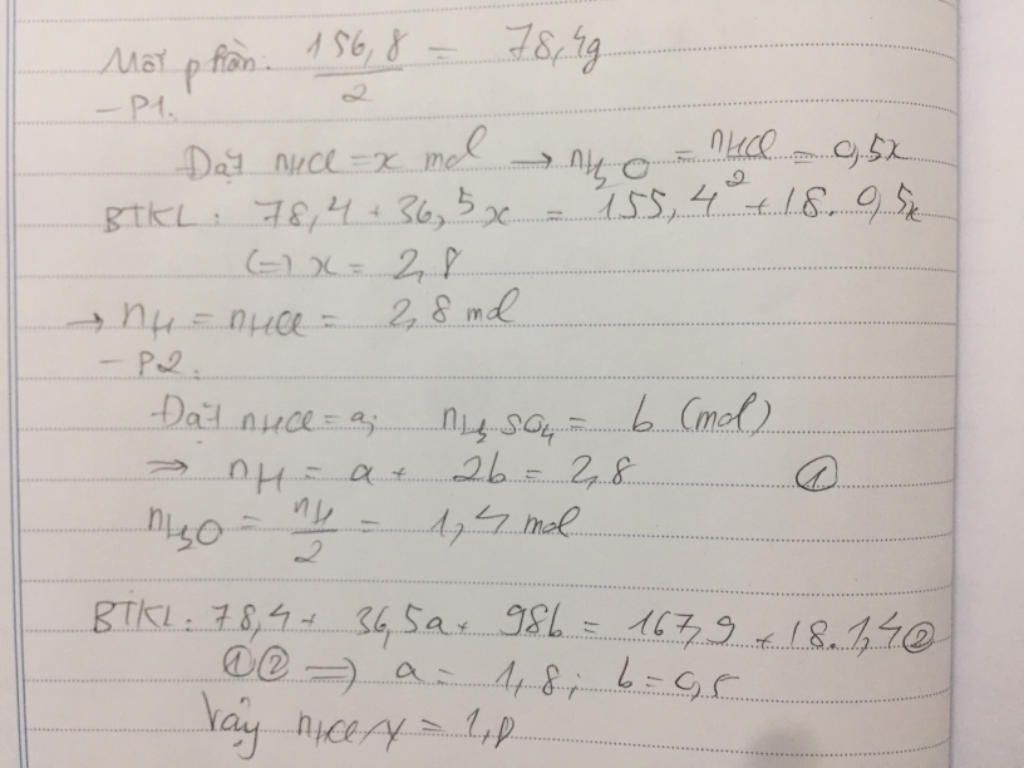 Mỗi phần: 156,8/2 = 78,4g
- P1.
Đặt nHCl = x mol → nH2O = nHCl/2 = 0,5x
BTKL: 78,4 + 36,5x = 155,4 + 18. 0,5x
(=) x = 2,8
→ nH = nHCl = 2,8 mol
- P2.
Đặt nHCl = a; nH2SO4 = b (mol)
⇒ nH = a + 2b = 2,8 ①
nH2O = nH/2 = 1,4 mol
BTKL: 78,4 + 36,5a + 98b = 167,9 + 18.1,4 ②
①② ⇒ a = 1,8; b = 0,5
Vậy nHCl/Y = 1,8